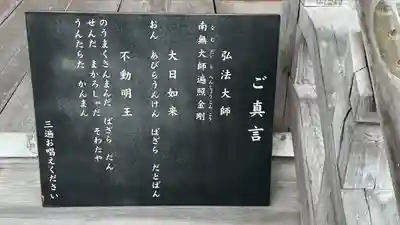 ご真言
弘法大師
南無大師遍照金剛
なむだいしへんじょうこんごう
大日如来
おん あびらうんけん ばざら だとばん
不動明王
のうまくさんまんだ ばざら だん
せんだ まかろしゃだ そわたや
うんたらた かんまん
三遍お唱えください